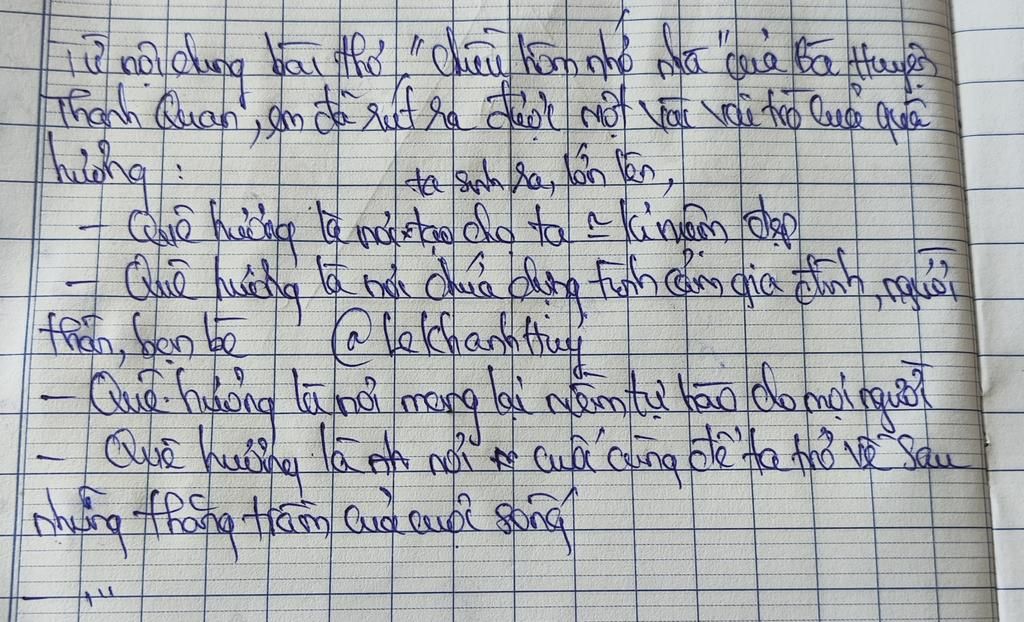 Từ nội dung bài thơ "chiều hôm nhớ nhà" của Bà Huyện
Thanh Quan, em đã rút ra được một vài vai trò của quê
hương :
ta sinh ra, lớn lên,
- Quê hương là nơi tạo cho ta kỉ niệm đẹp
- Quê hương là nơi chứa đựng tình cảm gia đình, người
thân, bạn bè @LeKhanhHuy
- Quê hương là nơi mang lại niềm tự hào cho mọi người
- Quê hương là nơi cuối cùng để ta trở về sau
những thăng trầm của cuộc sống
- ...